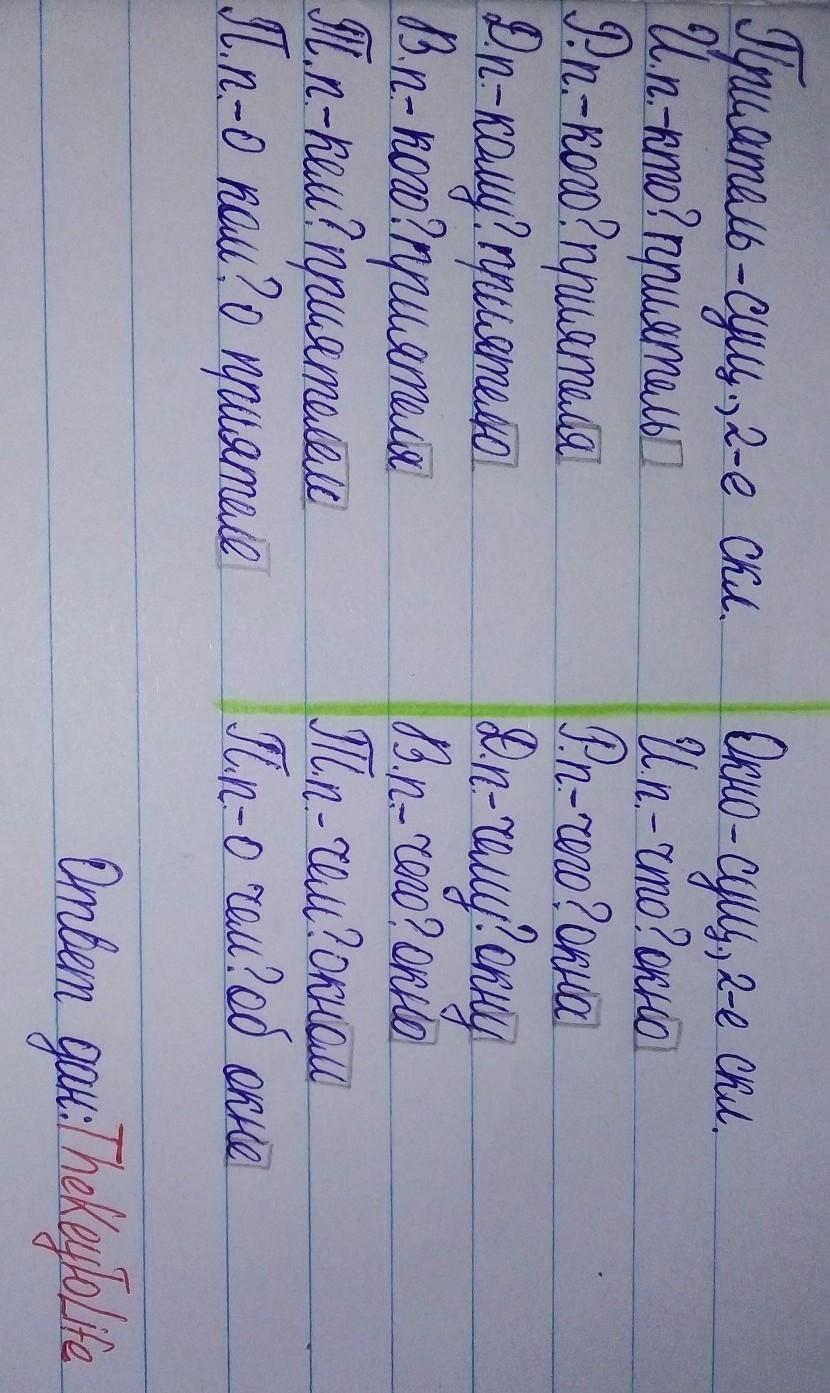 Приятель-сущ., 2-е скл.
И.п.-кто? приятель
Р.п.-кого? приятеля
Д.п.-кому? приятелю
В.п.-кого? приятеля
Т.п.-кем? приятелем
П.п.-о ком? о приятеле
Окно-сущ., 2-е скл.
И.п.-что? окно
Р.п.-чего? окна
Д.п.-чему? окну
В.п.-чего? окно
Т.п.-чем? окном
П.п.-о чем? об окне
Ответ дан: TheKeyToLife